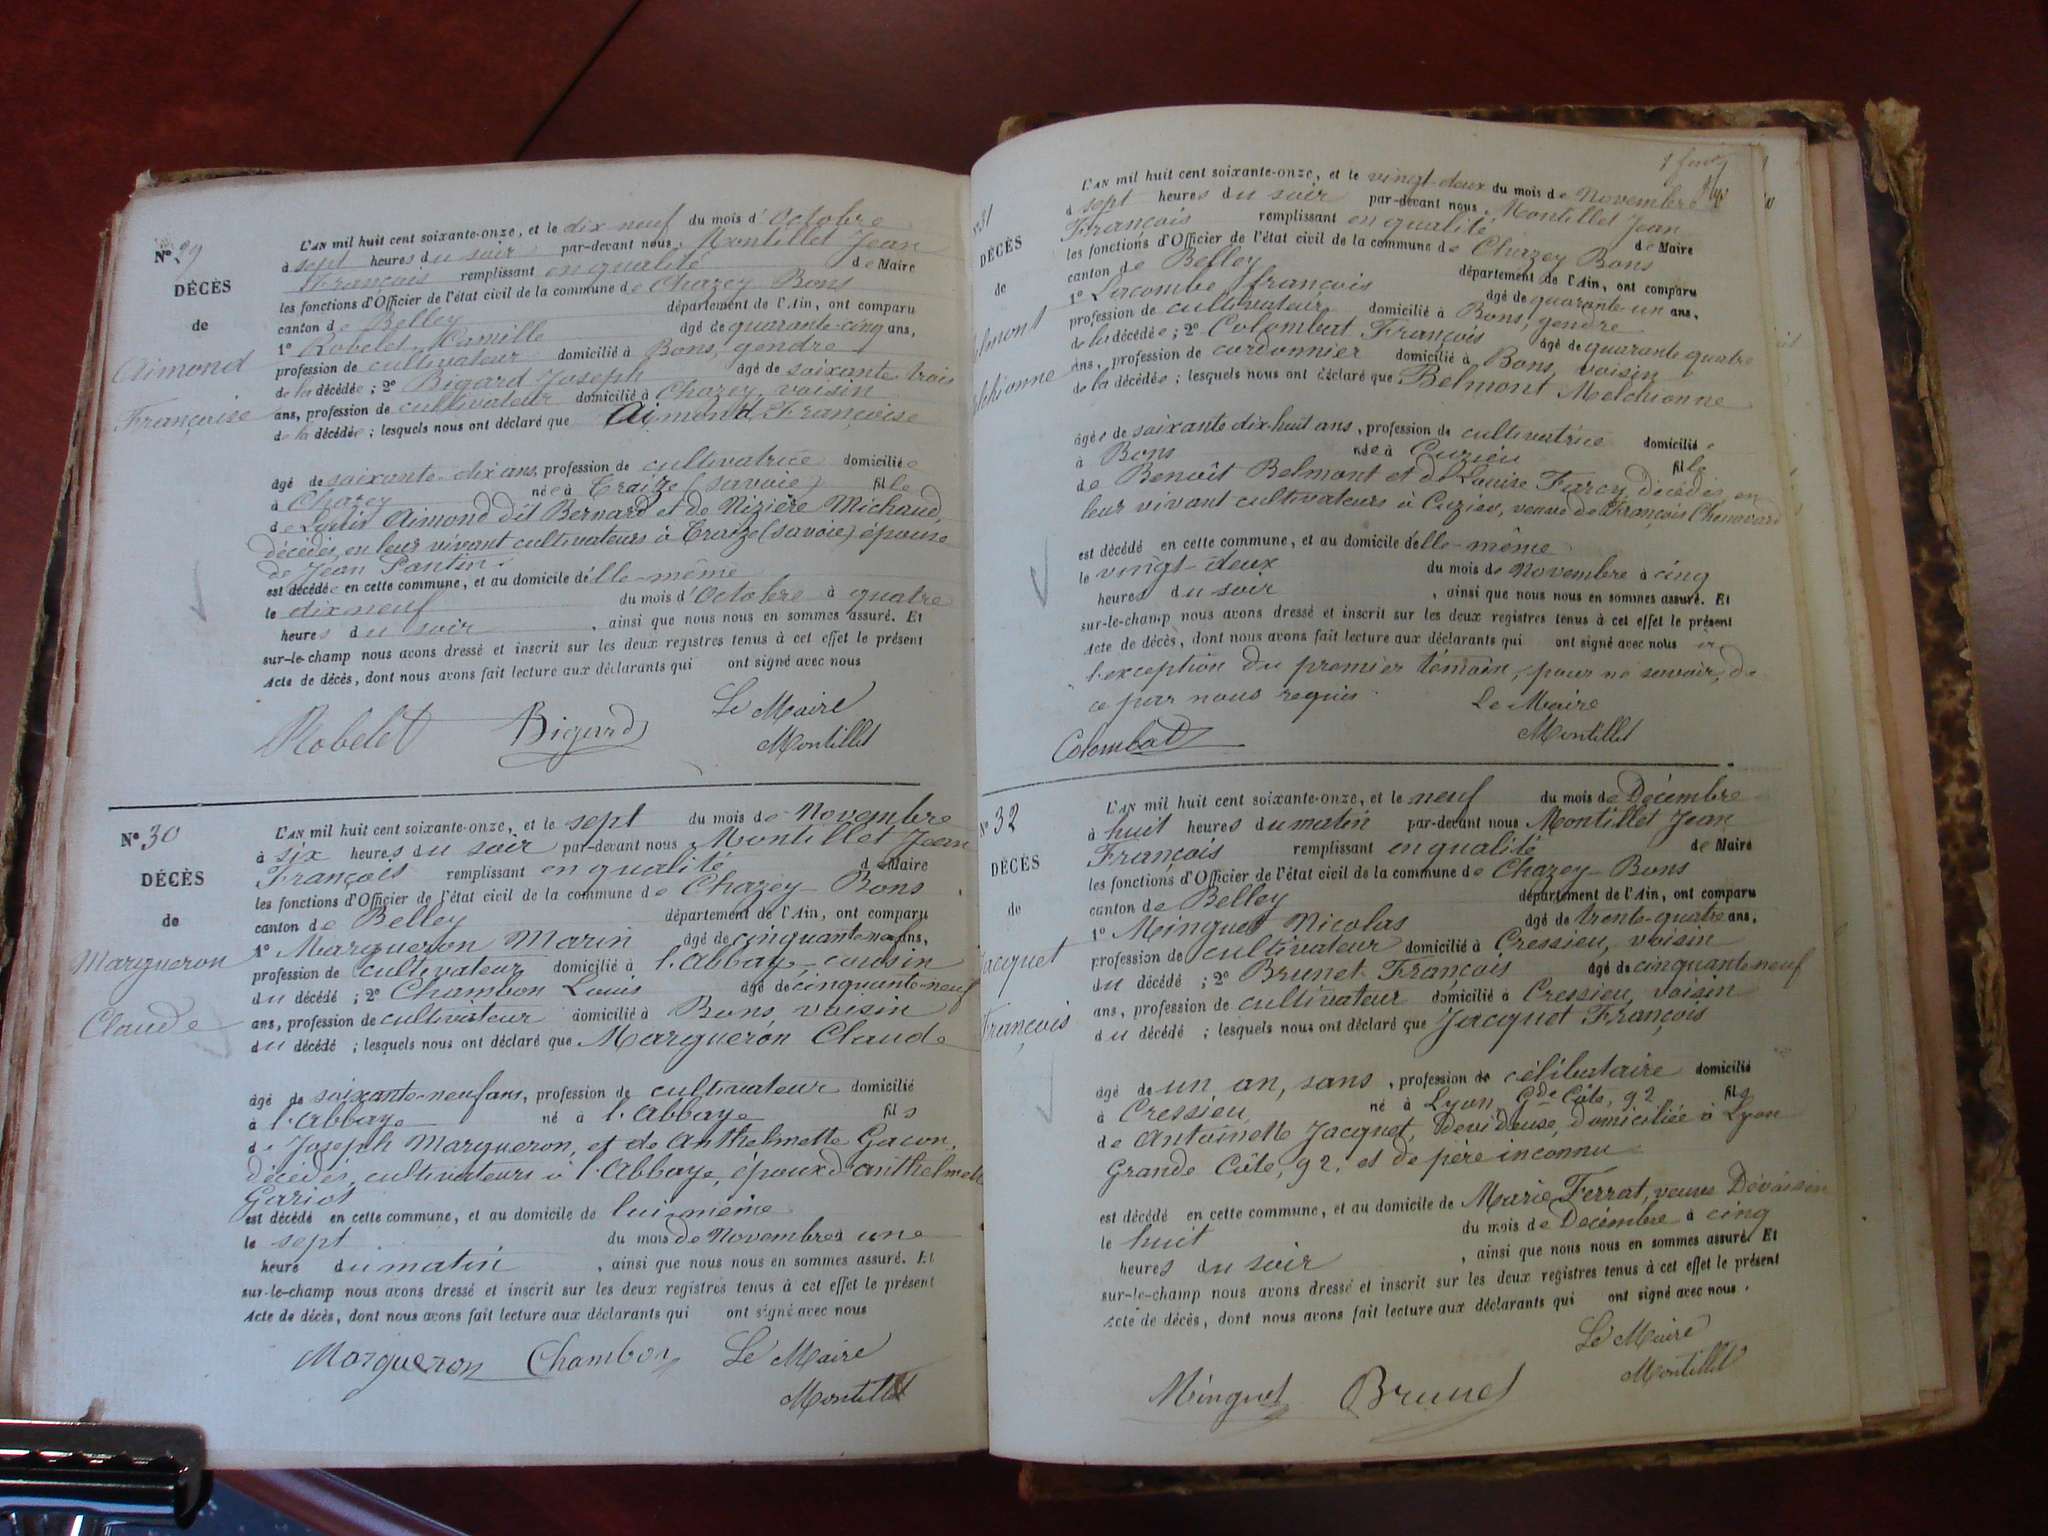 N° 29
DÉCÈS
de
Aimond
Françoise
L'AN mil huit cent soixante-onze, et le dix neuf du mois d'Octobre
à sept heures du soir par-devant nous, Montillet Jean
François remplissant en qualité de Maire
les fonctions d'Officier de l'état civil de la commune de Chazey Bons
canton de Belley département de l'Ain, ont comparu
1° Robelet Camille âgé de quarante-cinq ans,
profession de cultivateur domicilié à Bons, gendre
de la décédée ; 2° Bigard Joseph âgé de soixante trois
ans, profession de cultivateur domicilié à Chazey, voisin
de la décédée ; lesquels nous ont déclaré que Aimond, Françoise
âgé de soixante-dix ans, profession de cultivatrice domiciliée
à Chazey née à Traize (Savoie) fille
de Louis Aimond dit Bernard et de Nizière Michaud,
décédés, en leur vivant cultivateurs à Traize (Savoie) épouse
de Jean Pantin
est décédée en cette commune, et au domicile d'elle-même
le dix neuf du mois d'Octobre à quatre
heures du soir, ainsi que nous nous en sommes assuré. Et
sur-le-champ nous avons dressé et inscrit sur les deux registres tenus à cet effet le présent
Acte de décès, dont nous avons fait lecture aux déclarants qui ont signé avec nous
Le Maire
Robelet Bigard Montillet
N° 30
DÉCÈS
de
Margueron
Claude
L'AN mil huit cent soixante-onze, et le sept du mois de Novembre
à six heures du soir par-devant nous Montillet Jean
François remplissant en qualité de Maire
les fonctions d'Officier de l'état civil de la commune de Chazey-Bons
canton de Belley département de l'Ain, ont comparu
1° Margueron Marin âgé de cinquante-neuf ans,
profession de cultivateur domicilié à l'Abbaye, cousin
du décédé ; 2° Chambon Louis âgé de cinquante-neuf
ans, profession de cultivateur domicilié à Bons voisin
du décédé ; lesquels nous ont déclaré que Margueron Claude
âgé de soixante-neuf ans, profession de cultivateur domicilié
à l'Abbaye né à l'Abbaye fils
de Joseph Margueron, et de Anthelmette Gacon,
décédés, cultivateurs à l'Abbaye, époux d'anthelmette
Gariot
est décédé en cette commune, et au domicile de lui-même
le sept du mois de Novembre à une
heure du matin, ainsi que nous nous en sommes assuré. Et
sur-le-champ nous avons dressé et inscrit sur les deux registres tenus à cet effet le présent
Acte de décès, dont nous avons fait lecture aux déclarants qui ont signé avec nous
Margueron Chambon Le Maire
Montillet
N° 31
DÉCÈS
de
L'AN mil huit cent soixante-onze, et le vingt-deux du mois de Novembre
à sept heures du soir par-devant nous, Montillet Jean
François remplissant en qualité de Maire
les fonctions d'Officier de l'état civil de la commune de Chazey Bons
canton de Belley département de l'Ain, ont comparu
1° Lacombe françois âgé de quarante-un ans,
profession de cultivateur domicilié à Bons, gendre
de la décédée ; 2° Colombat François âgé de quarante quatre
ans, profession de cordonnier domicilié à Bons, voisin
de la décédée ; lesquels nous ont déclaré que Belmont Melchionne
âgée de soixante dix-huit ans, profession de cultivatrice domiciliée
à Bons née à Cuzieu fille
de Benoît Belmont et de Louise Farcy, décédés, en
leur vivant cultivateurs à Cuzieu, veuve de François Chenavard
est décédé en cette commune, et au domicile d'elle-même
le vingt-deux du mois de Novembre à cinq
heures du soir, ainsi que nous nous en sommes assuré. Et
sur-le-champ nous avons dressé et inscrit sur les deux registres tenus à cet effet le présent
Acte de décès, dont nous avons fait lecture aux déclarants qui ont signé avec nous à
l'exception du premier témoin, pour ne savoir, de
ce par nous requis
Le Maire
Colombat Montillet
N° 32
DÉCÈS
de
Jacquet
François
L'AN mil huit cent soixante-onze, et le neuf du mois de Décembre
à huit heures du matin par-devant nous Montillet Jean
François remplissant en qualité de Maire
les fonctions d'Officier de l'état civil de la commune de Chazey-Bons
canton de Belley département de l'Ain, ont comparu
1° Minguet Nicolas âgé de trente-quatre ans,
profession de cultivateur domicilié à Cressieu, voisin
du décédé ; 2° Brunet François âgé de cinquante neuf
ans, profession de cultivateur domicilié à Cressieu, voisin
du décédé ; lesquels nous ont déclaré que Jacquet François
âgé de un an, sans, profession de célibataire domicilié
à Cressieu, né à Lyon, Gde Côte, 92 fils
de Antoinette Jacquet, Dévideuse, domiciliée à Lyon
Grande Côte, 92. et de père inconnu
est décédé en cette commune, et au domicile de Marie Ferrat, veuve
le huit du mois de Décembre à cinq
heures du soir, ainsi que nous nous en sommes assuré. Et
sur-le-champ nous avons dressé et inscrit sur les deux registres tenus à cet effet le présent
Acte de décès, dont nous avons fait lecture aux déclarants qui ont signé avec nous.
Le Maire
Minguet Brunet Montillet